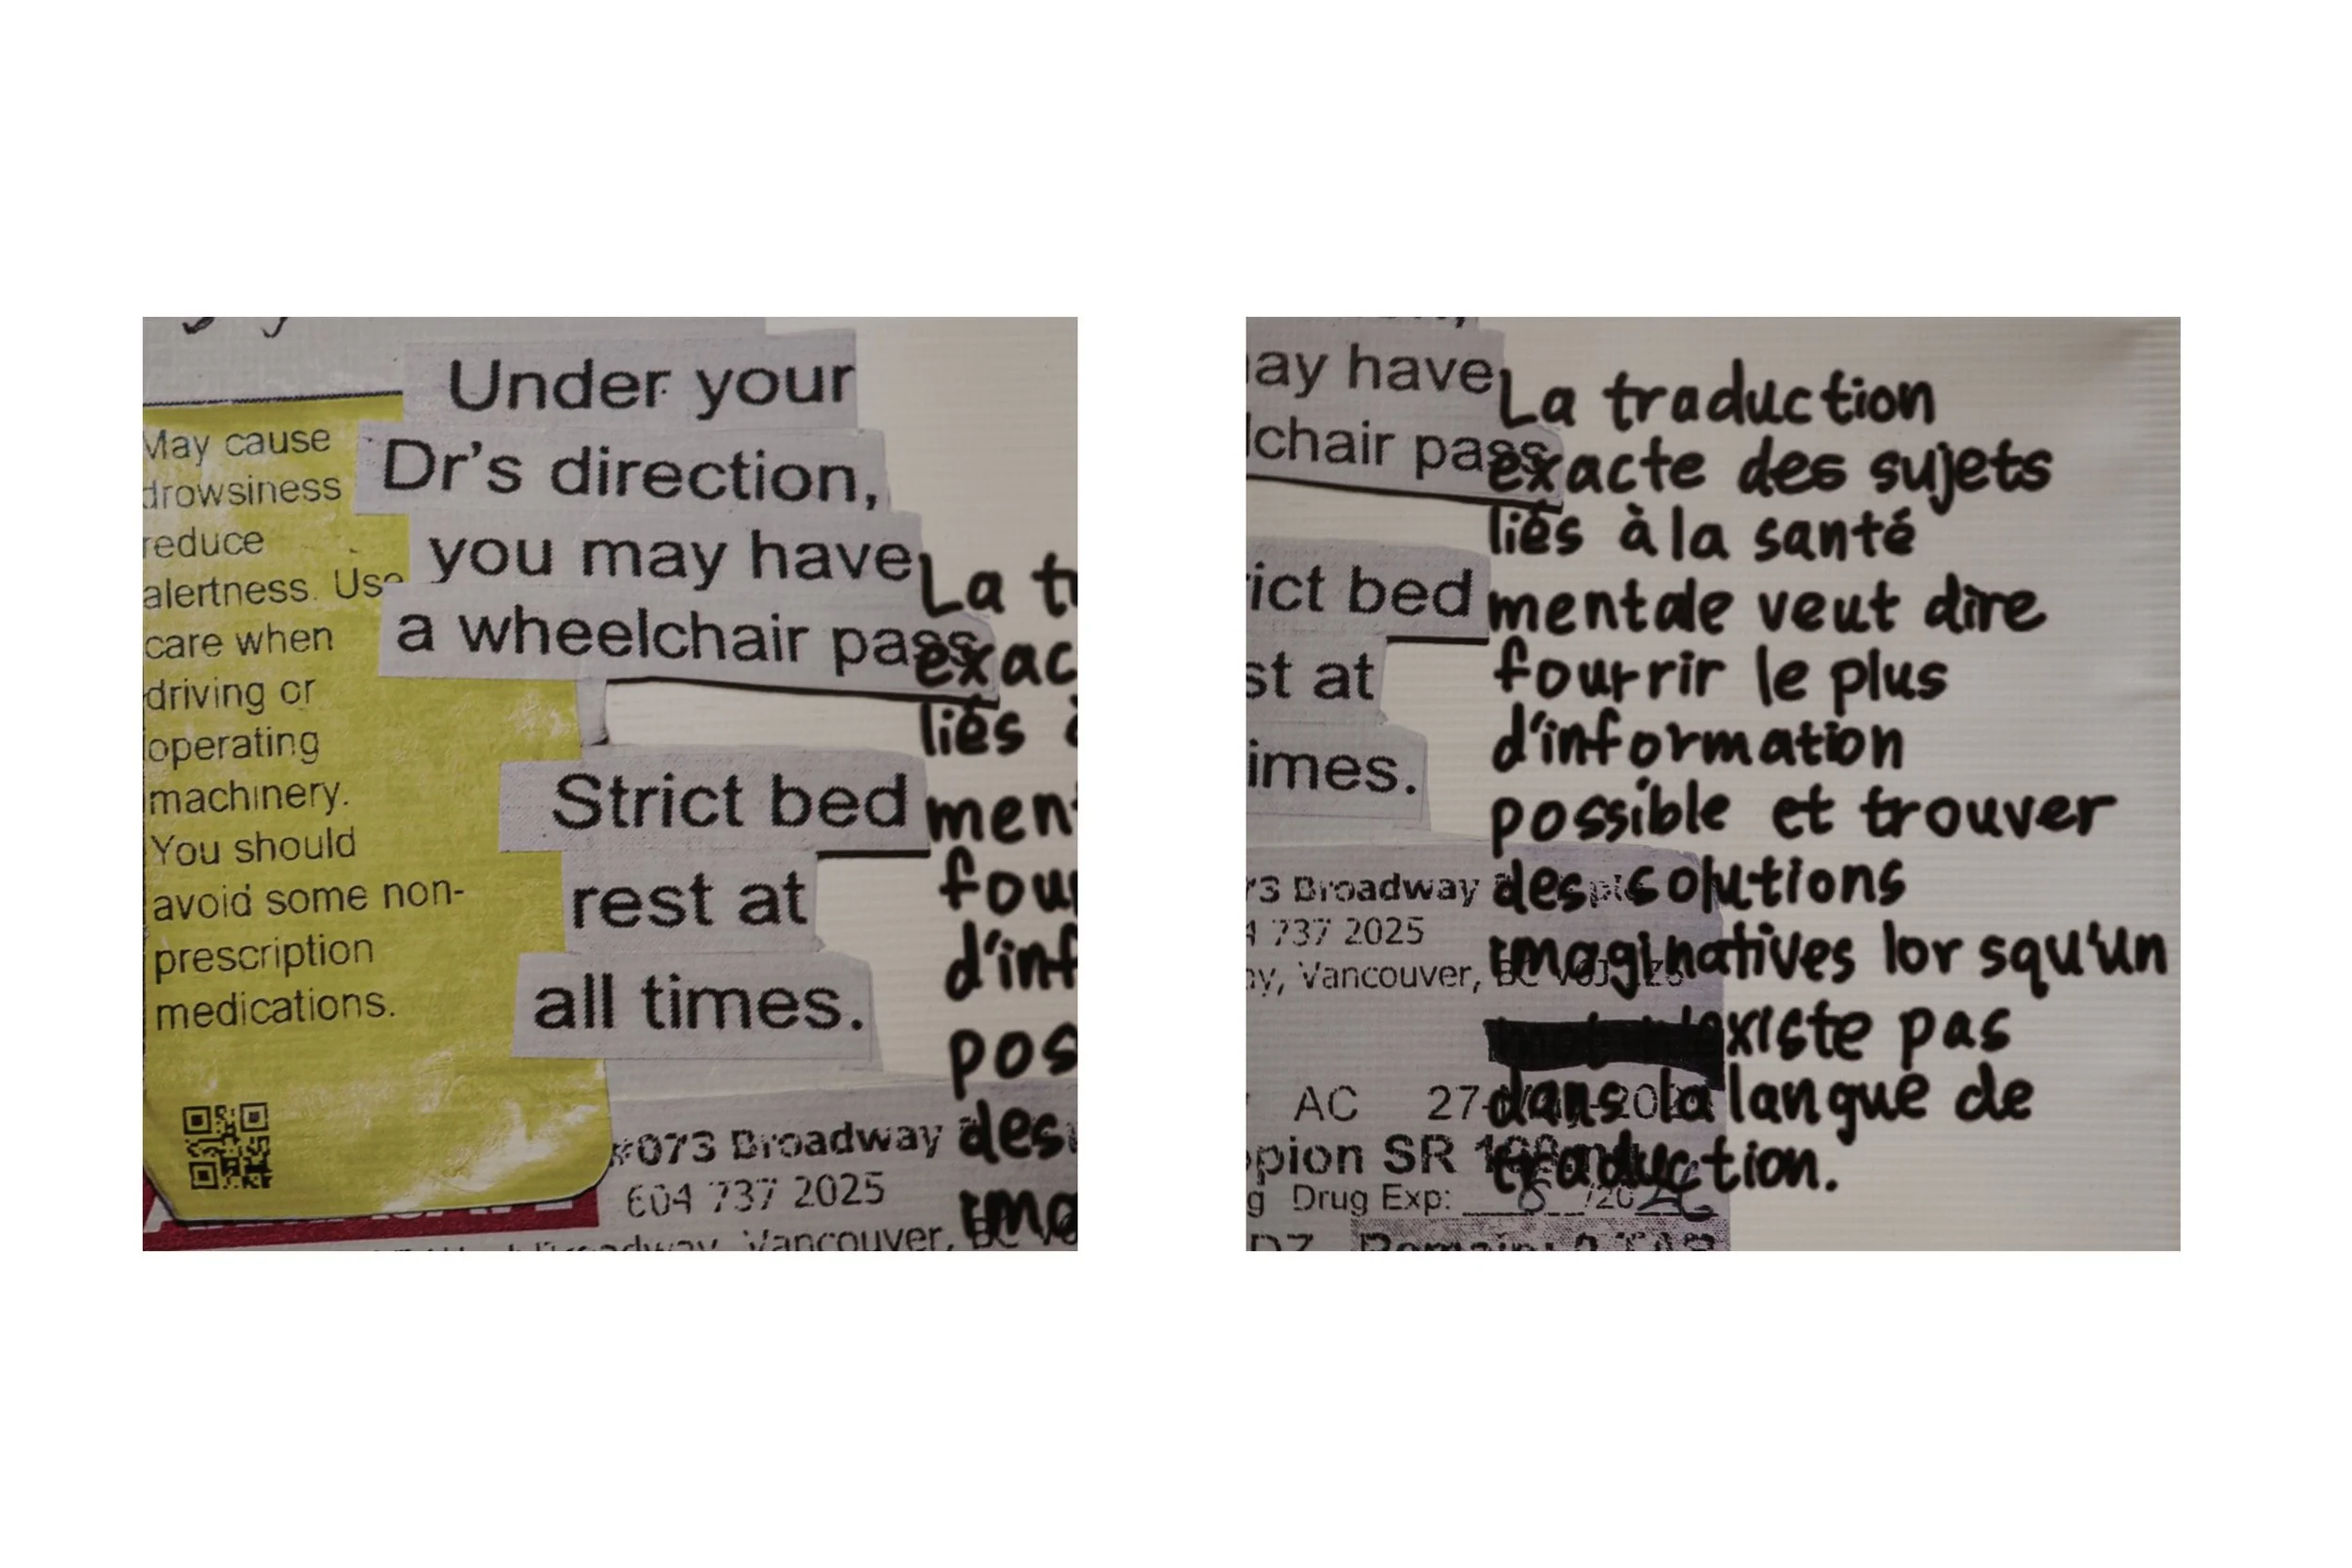 May cause
drowsiness
reduce
alertness. Use
care when
driving or
operating
machinery.
You should
avoid some non-
prescription
medications.
Under your
Dr's direction,
you may have
a wheelchair pass
Strict bed
rest at
all times.
#073 Broadway
604 737 2025
Vancouver, BC
La t
exac
liés à
ment
four
d'inf
pos
des
ima
ay have
lchair pass
rict bed
st at
imes.
73 Broadway
4 737 2025
ay, Vancouver, BC V6J
AC 27-
pion SR 1
g Drug Exp: /20
DZ Remain: TAB
La traduction
exacte des sujets
liés à la santé
mentale veut dire
fourrir le plus
d'information
possible et trouver
des solutions
imaginatives lorsqu'un
existe pas
dans la langue de
traduction.